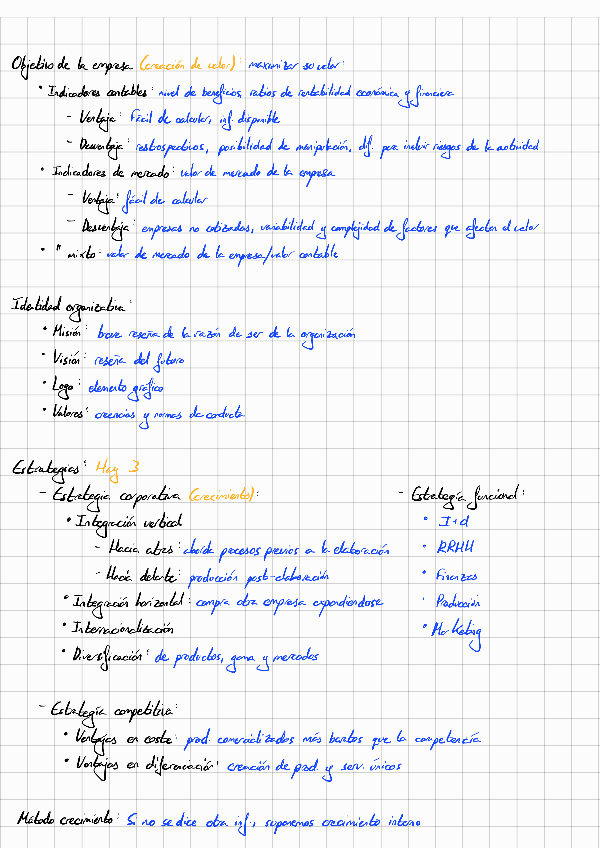 Objetivo de la empresa (creación de valor): maximizar su valor:
• Indicadores contables: nivel de beneficios, ratios de rentabilidad económica y financiera
- Ventaja: Fácil de calcular, inf. disponible
- Desventaja: restrospectivos, posibilidad de manipulación, dif. para incluir riesgos de la actividad
• Indicadores de mercado: valor de mercado de la empresa
- Ventaja: fácil de calcular
- Desventaja: empresas no cotizadas, variabilidad y complejidad de factores que afectan al valor
• " mixto: valor de mercado de la empresa/valor contable
Identidad organizativa:
• Misión: breve reseña de la razón de ser de la organización
• Visión: reseña del futuro
• Logo: elemento gráfico
• Valores: creencias y normas de conducta
Estrategias: Hay 3
- Estrategia corporativa (crecimiento):
• Integración vertical
- Hacia atras: aborda procesos previos a la elaboración
- Hacia delante: producción post-elaboración
• Integración horizontal: compra otra empresa expandiendose
• Internacionalización
• Diversificación: de productos, gama y mercados
- Estrategia funcional:
• I+d
• RRHH
• Finanzas
• Producción
• Marketing
- Estrategia competitiva:
• Ventajas en coste: prod. comercializados más baratos que la competencia
• Ventajas en diferenciación: creación de prod. y serv. únicos
Método crecimiento: Si no se dice otra inf., suponemos crecimiento interno